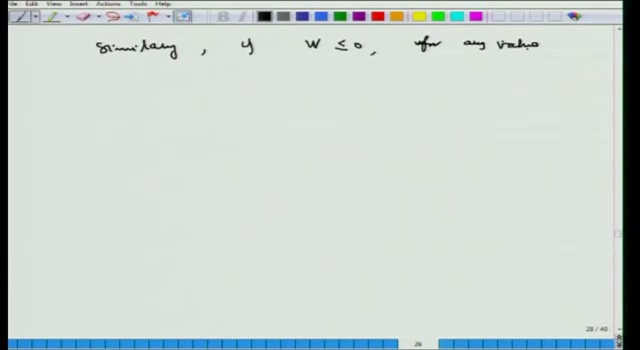 View Insert Actions Tools Help
Similary, if W ≤ 0, for any value
28 / 40
28